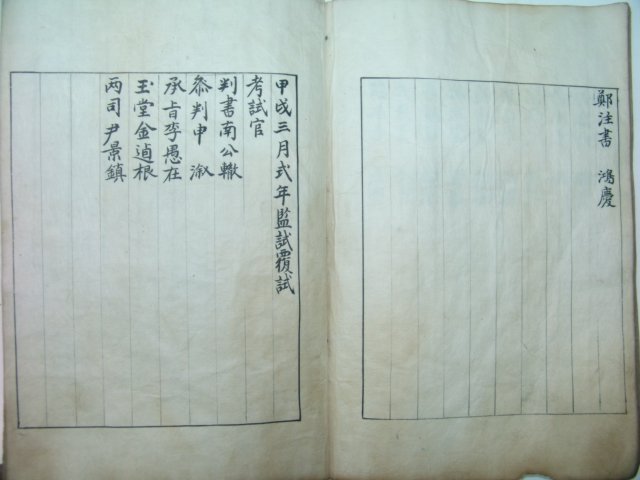 鄭注書 鴻慶
甲戌三月式年監試覆試
考試官
判書南公轍
叅判申 溆
承旨李愚在
玉堂金逌根
両司尹景鎮